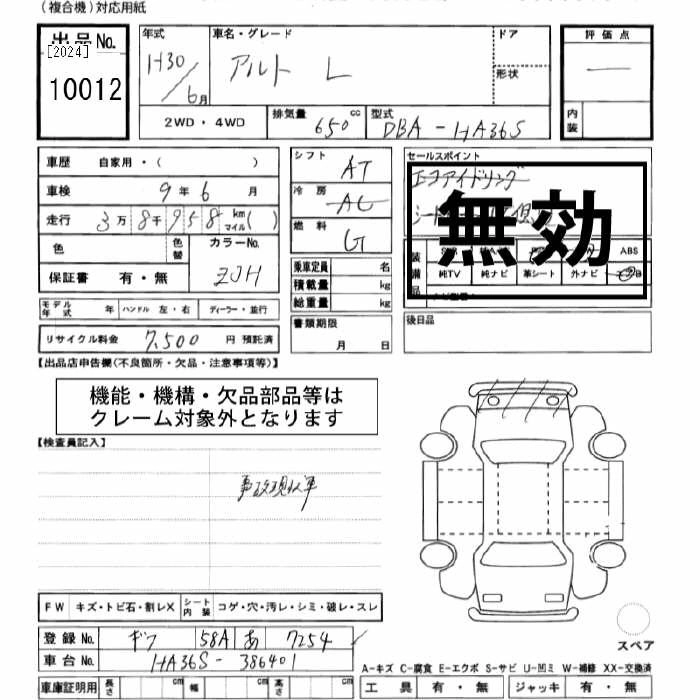 (複合機)対応用紙
出品No.
[2024]
10012
年式
H30/6月
車名・グレード
アルト L
ドア
形状
評価点
—
内装
2WD・4WD
排気量 650 cc
型式 DBA-HA36S
車歴 自家用・( )
車検 9年6月
走行 3万8千958 km マイル( )
色
色替
カラーNo.
ZJH
保証書 有・無
モデル年式 年 ハンドル 左・右 ディーラー・並行
リサイクル料金 7,500 円 預託済
シフト AT
冷房 AC
燃料 G
乗車定員 名
積載量 kg
総重量 kg
書類期限
月 日
セールスポイント
エコアイドリング
シート
無効
装備品
ABS
純TV 純ナビ 革シート 外ナビ
後日品
【出品店申告欄(不良箇所・欠品・注意事項等)】
機能・機構・欠品部品等は
クレーム対象外となります
【検査員記入】
事故現状車
FW キズ・トビ石・割レX シート内装 コゲ・穴・汚レ・シミ・破レ・スレ
登録No. ギフ 58A あ 7254
車台No. HA36S-386401
車庫証明用 長さ cm 幅 cm 高さ cm
スペア
A-キズ C-腐食 E-エクボ S-サビ U-凹ミ W-補修 XX-交換済
工具 有・無 ジャッキ 有・無